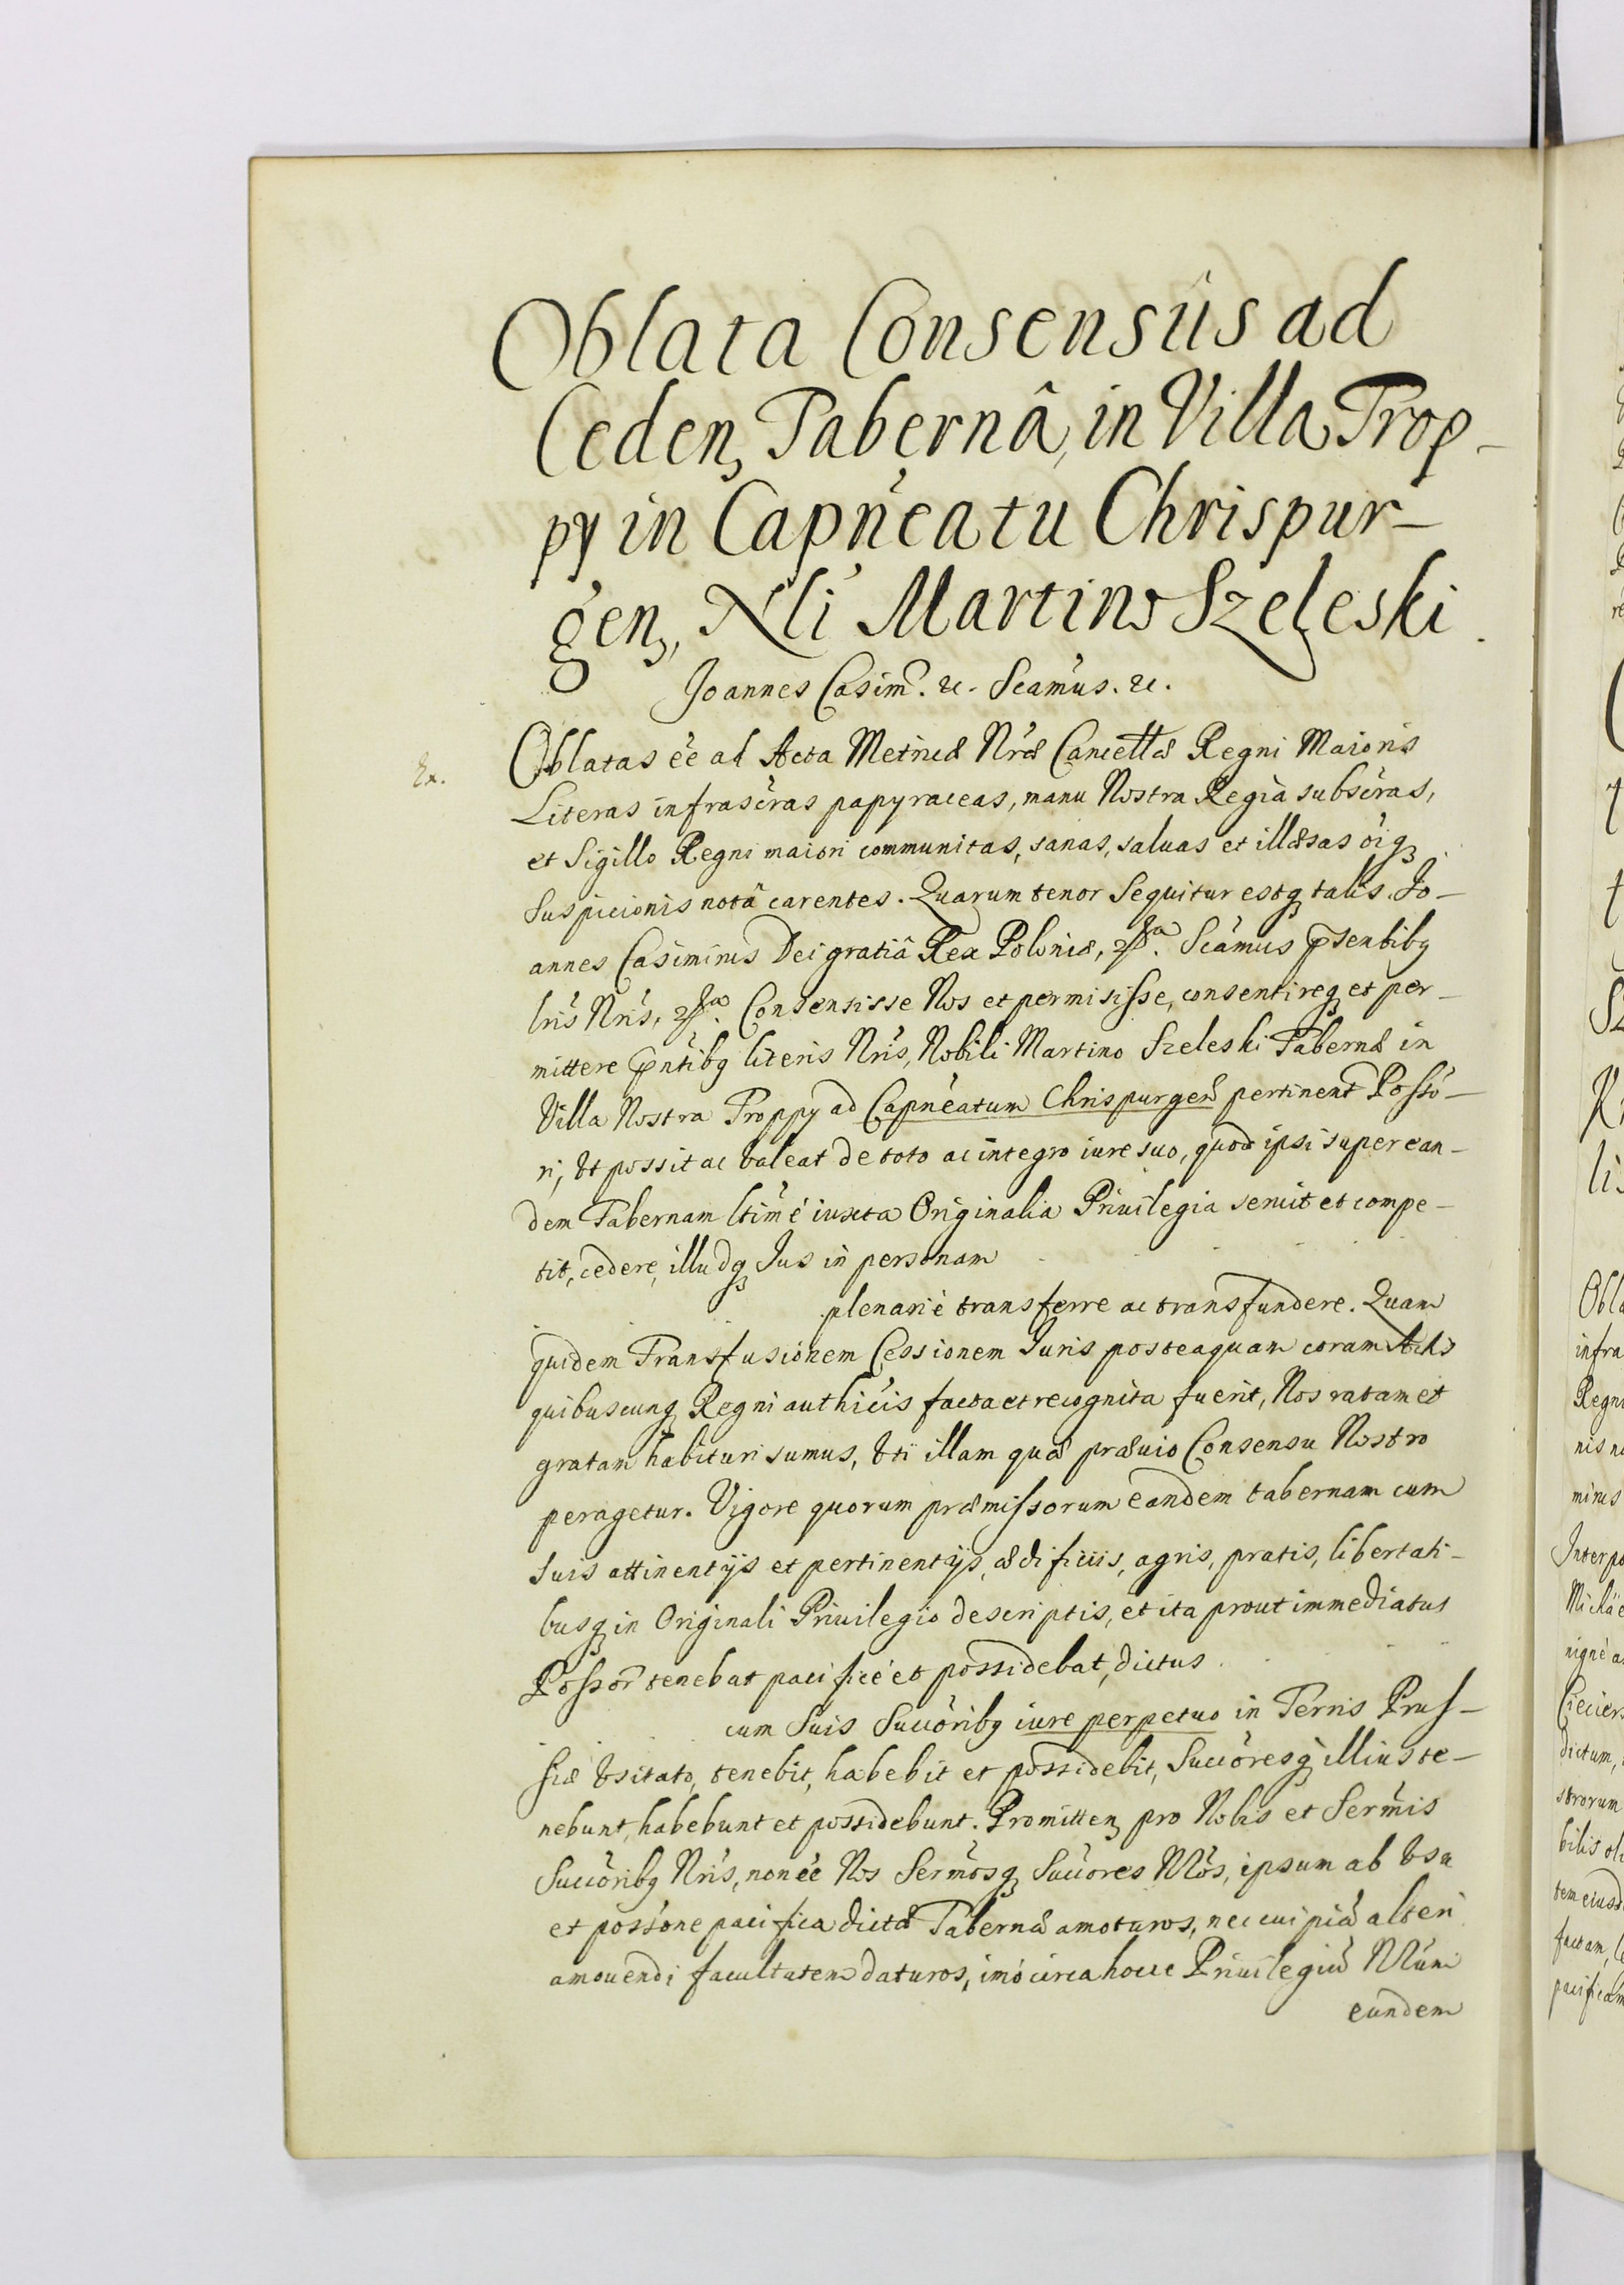 Oblata Consensûs ad
Ceden, Tabernâ, in Villa Prop-
py in Capñeatu Chrispur-
gen, Nli Martino Szeleski.
Joannes Casim. &c. Scamus. &c.
Ex.
Oblatas eẽ ad Acta Metricæ Nræ Cancellæ Regni Maioris
Literas infrascras papyraceas, manu Nostra Regia subscras,
et Sigillo Regni maiori communitas, sanas, saluas et illæsas oiq
Suspicionis notâ carentes. Quarum tenor Sequitur estq talis. Jo-
annes Casimirus Dei gratiâ Rex Poloniæ, &ca. Scamus psentibq
lris Nris, &ca. Consensisse Nos et permisisse, consentireq et per-
mittere pntibq literis Nris, Nobili Martino Szeleski Tabernæ in
Villa Nostra Proppy ad Capñeatum Chrispurgen pertinent Posso-
ri, Ut possit ac valeat de toto ac integro iure suo, quod ipsi super ean-
dem Tabernam ltimè iuxta Originalia Priuilegia seruit et compe-
tit, cedere, illudq Jus in personam
plenariè transferre ac transfundere. Quam
quidem Transfusionem Cessionem Juris posteaquam coram Actis
quibuscunq Regni authicis facta et recognita fuerit, Nos ratam et
gratam habituri sumus, Uti illam quæ præuio Consensu Nostro
peragetur. Vigore quorum præmissorum eandem tabernam cum
suis attinentijs et pertinentijs, ædificiis, agris, pratis, libertati-
busq in Originali Priuilegio descriptis, et ita prout immediatus
Possor tenebat pacificè et possidebat, dictus
cum Suis Succoribq iure perpetuo in Terris Prus-
siæ Usitato, tenebit, habebit et possidebit, Succoresq illius te-
nebunt, habebunt et possidebunt. Promitten pro Nobis et Sermis
Succoribq Nris, non eẽ Nos Sermosq Succores Nros, ipsum ab Usu
et possone pacifica dictæ Tabernæ amoturos, nec cuipiã alteri
amouendi facultatem daturos, imò circa hocce Priuilegiũ Nrum
eundem